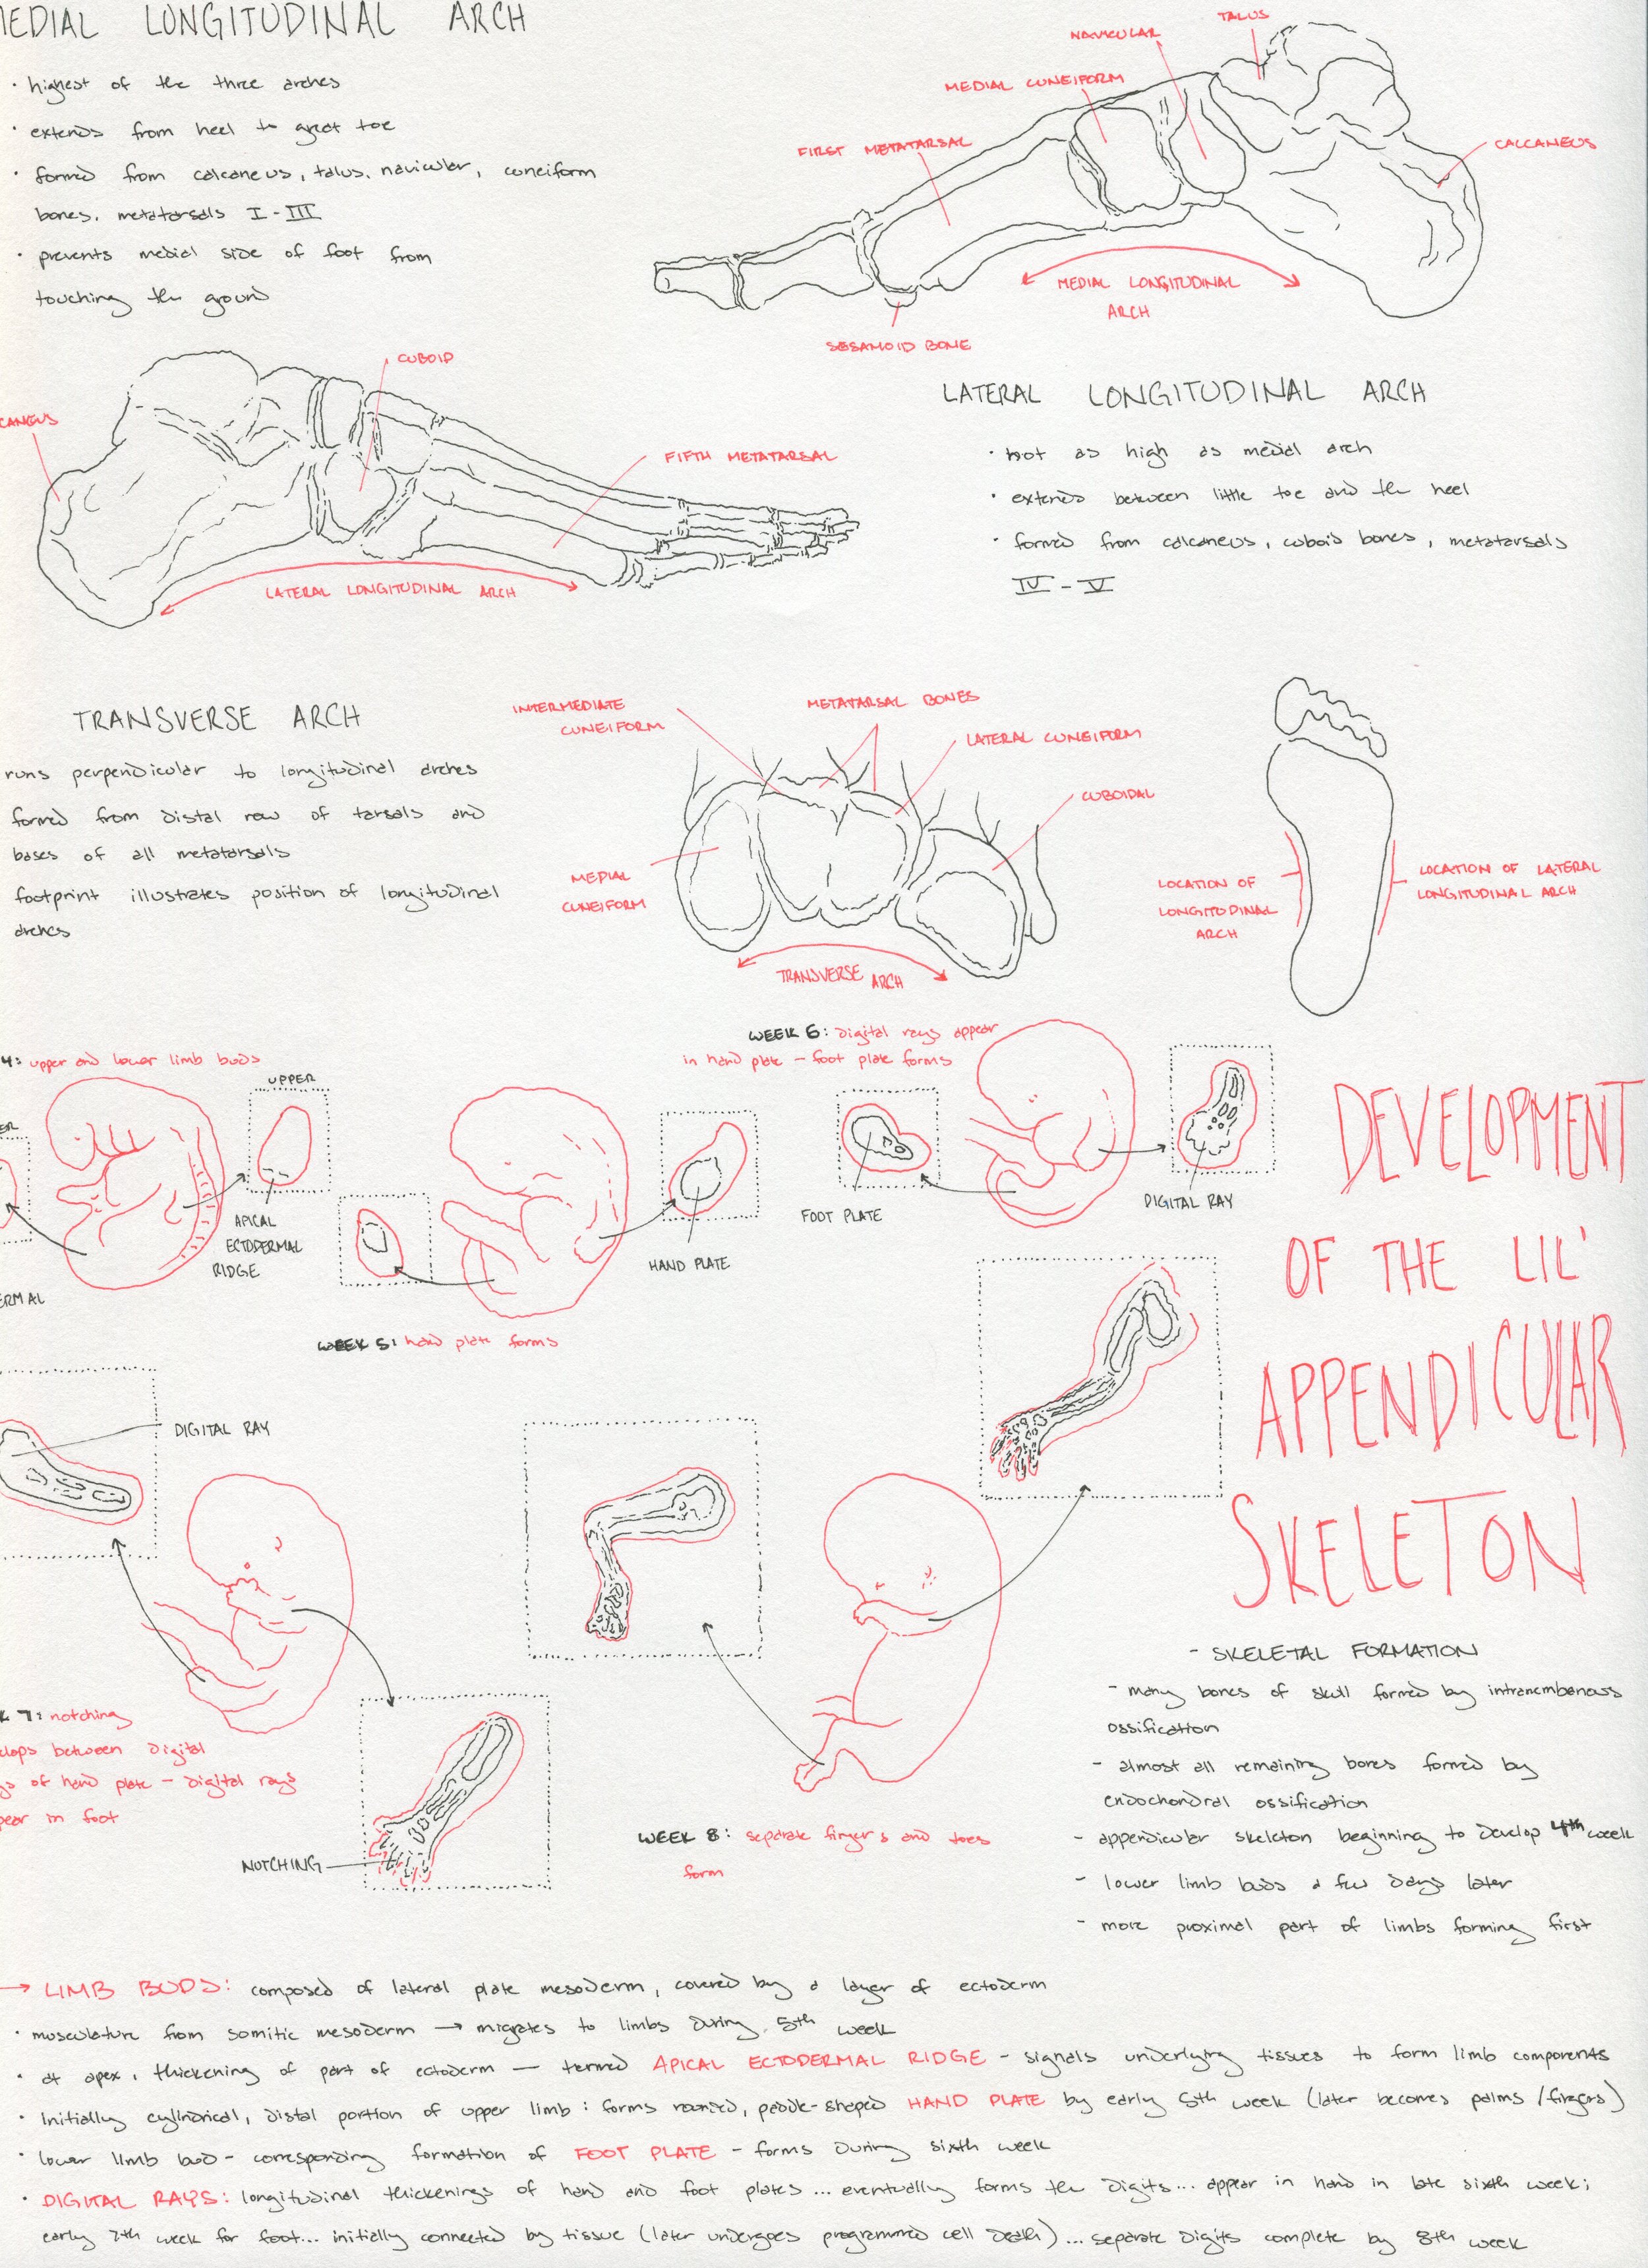 MEDIAL LONGITUDINAL ARCH
· highest of the three arches
· extends from heel to great toe
· formed from calcaneus, talus, navicular, cuneiform
bones, metatarsals I - III
· prevents medial side of foot from
touching the ground
TALUS
NAVICULAR
MEDIAL CUNEIFORM
FIRST METATARSAL
CALCANEUS
MEDIAL LONGITUDINAL
ARCH
SESAMOID BONE
CUBOID
CANEUS
FIFTH METATARSAL
LATERAL LONGITUDINAL ARCH
LATERAL LONGITUDINAL ARCH
· not as high as medial arch
· extends between little toe and the heel
· formed from calcaneus, cuboid bones, metatarsals
IV - V
TRANSVERSE ARCH
runs perpendicular to longitudinal arches
formed from distal row of tarsals and
bases of all metatarsals
footprint illustrates position of longitudinal
arches
INTERMEDIATE
CUNEIFORM
METATARSAL BONES
LATERAL CUNEIFORM
CUBOIDAL
MEDIAL
CUNEIFORM
TRANSVERSE ARCH
LOCATION OF
LONGITUDINAL
ARCH
LOCATION OF LATERAL
LONGITUDINAL ARCH
4: upper and lower limb buds
UPPER
ER
APICAL
ECTODERMAL
RIDGE
ERMAL
WEEK 5: hand plate forms
HAND PLATE
WEEK 6: digital rays appear
in hand plate - foot plate forms
FOOT PLATE
DIGITAL RAY
DEVELOPMENT
OF THE LIL'
APPENDICULAR
SKELETON
DIGITAL RAY
K 7: notching
elops between digital
ys of hand plate - digital rays
pear in foot
NOTCHING
WEEK 8: separate fingers and toes
form
- SKELETAL FORMATION
- many bones of skull formed by intramembenous
ossification
- almost all remaining bones formed by
endochondral ossification
- appendicular skeleton beginning to develop 4th week
- lower limb buds a few days later
- more proximal part of limbs forming first
→ LIMB BUDS: composed of lateral plate mesoderm, covered by a layer of ectoderm
· musculature from somitic mesoderm → migrates to limbs during 5th week
· at apex, thickening of part of ectoderm - termed APICAL ECTODERMAL RIDGE - signals underlying tissues to form limb components
· initially cylindrical, distal portion of upper limb: forms rounded, paddle-shaped HAND PLATE by early 5th week (later becomes palms/fingers)
· lower limb bud - corresponding formation of FOOT PLATE - forms during sixth week
· DIGITAL RAYS: longitudinal thickenings of hand and foot plates... eventually forms the digits... appear in hand in late sixth week;
early 7th week for foot... initially connected by tissue (later undergoes programmed cell death)... separate digits complete by 8th week